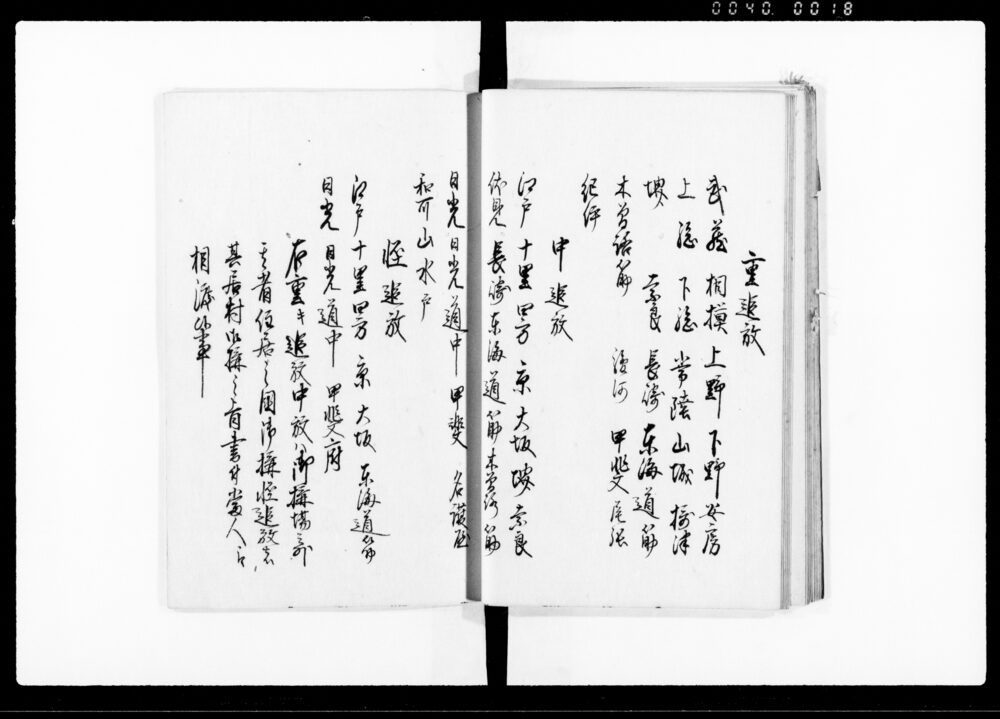 0040.0018
重追放
武蔵 相摸 上野 下野 安房
上総 下総 常陸 山城 摂津
堺 奈良 長崎 東海道筋
木曽路筋 駿河 甲斐 尾張
紀伊
中追放
江戸十里四方 京 大坂 堺 奈良
伏見 長崎 東海道筋 木曽路筋
日光 日光道中 甲斐 名護屋
和哥山 水戸
軽追放
江戸十里四方 京 大坂 東海道筋
日光 日光道中 甲斐府
右重キ追放中放ハ御搆場之外
其者住居之国御搆軽追放者
其居村御搆之旨書付当人江
相渡候事